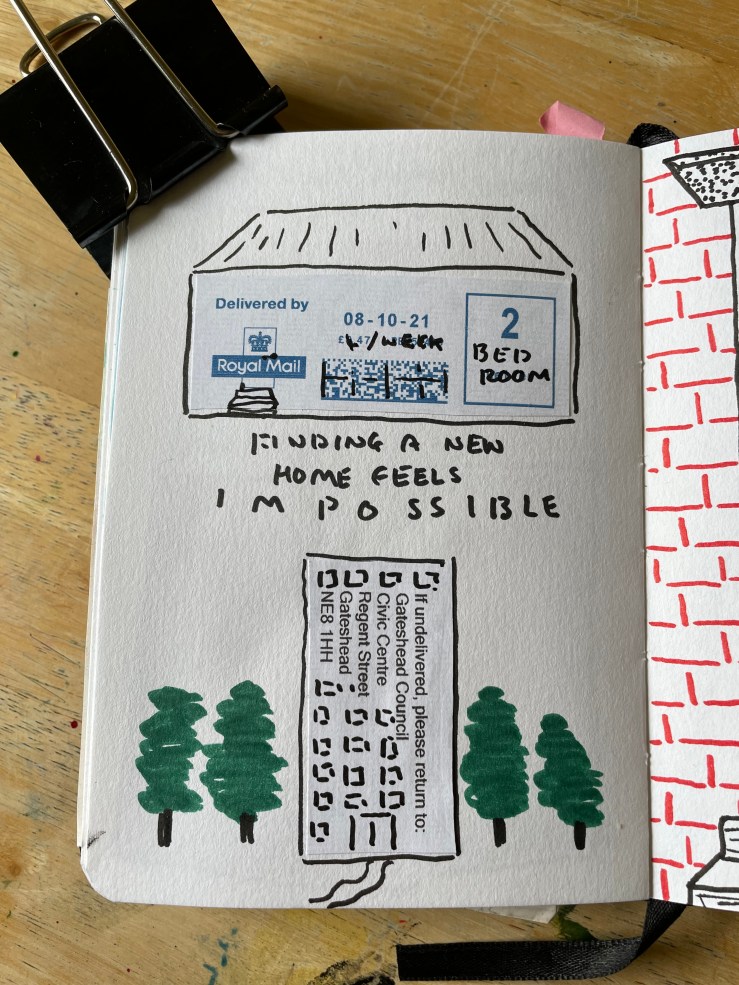 Delivered by
Royal Mail
08-10-21
/WEEK
2
BED
ROOM
FINDING A NEW
HOME FEELS
IMPOSSIBLE
If undelivered, please return to:
Gateshead Council
Civic Centre
Regent Street
Gateshead
NE8 1HH